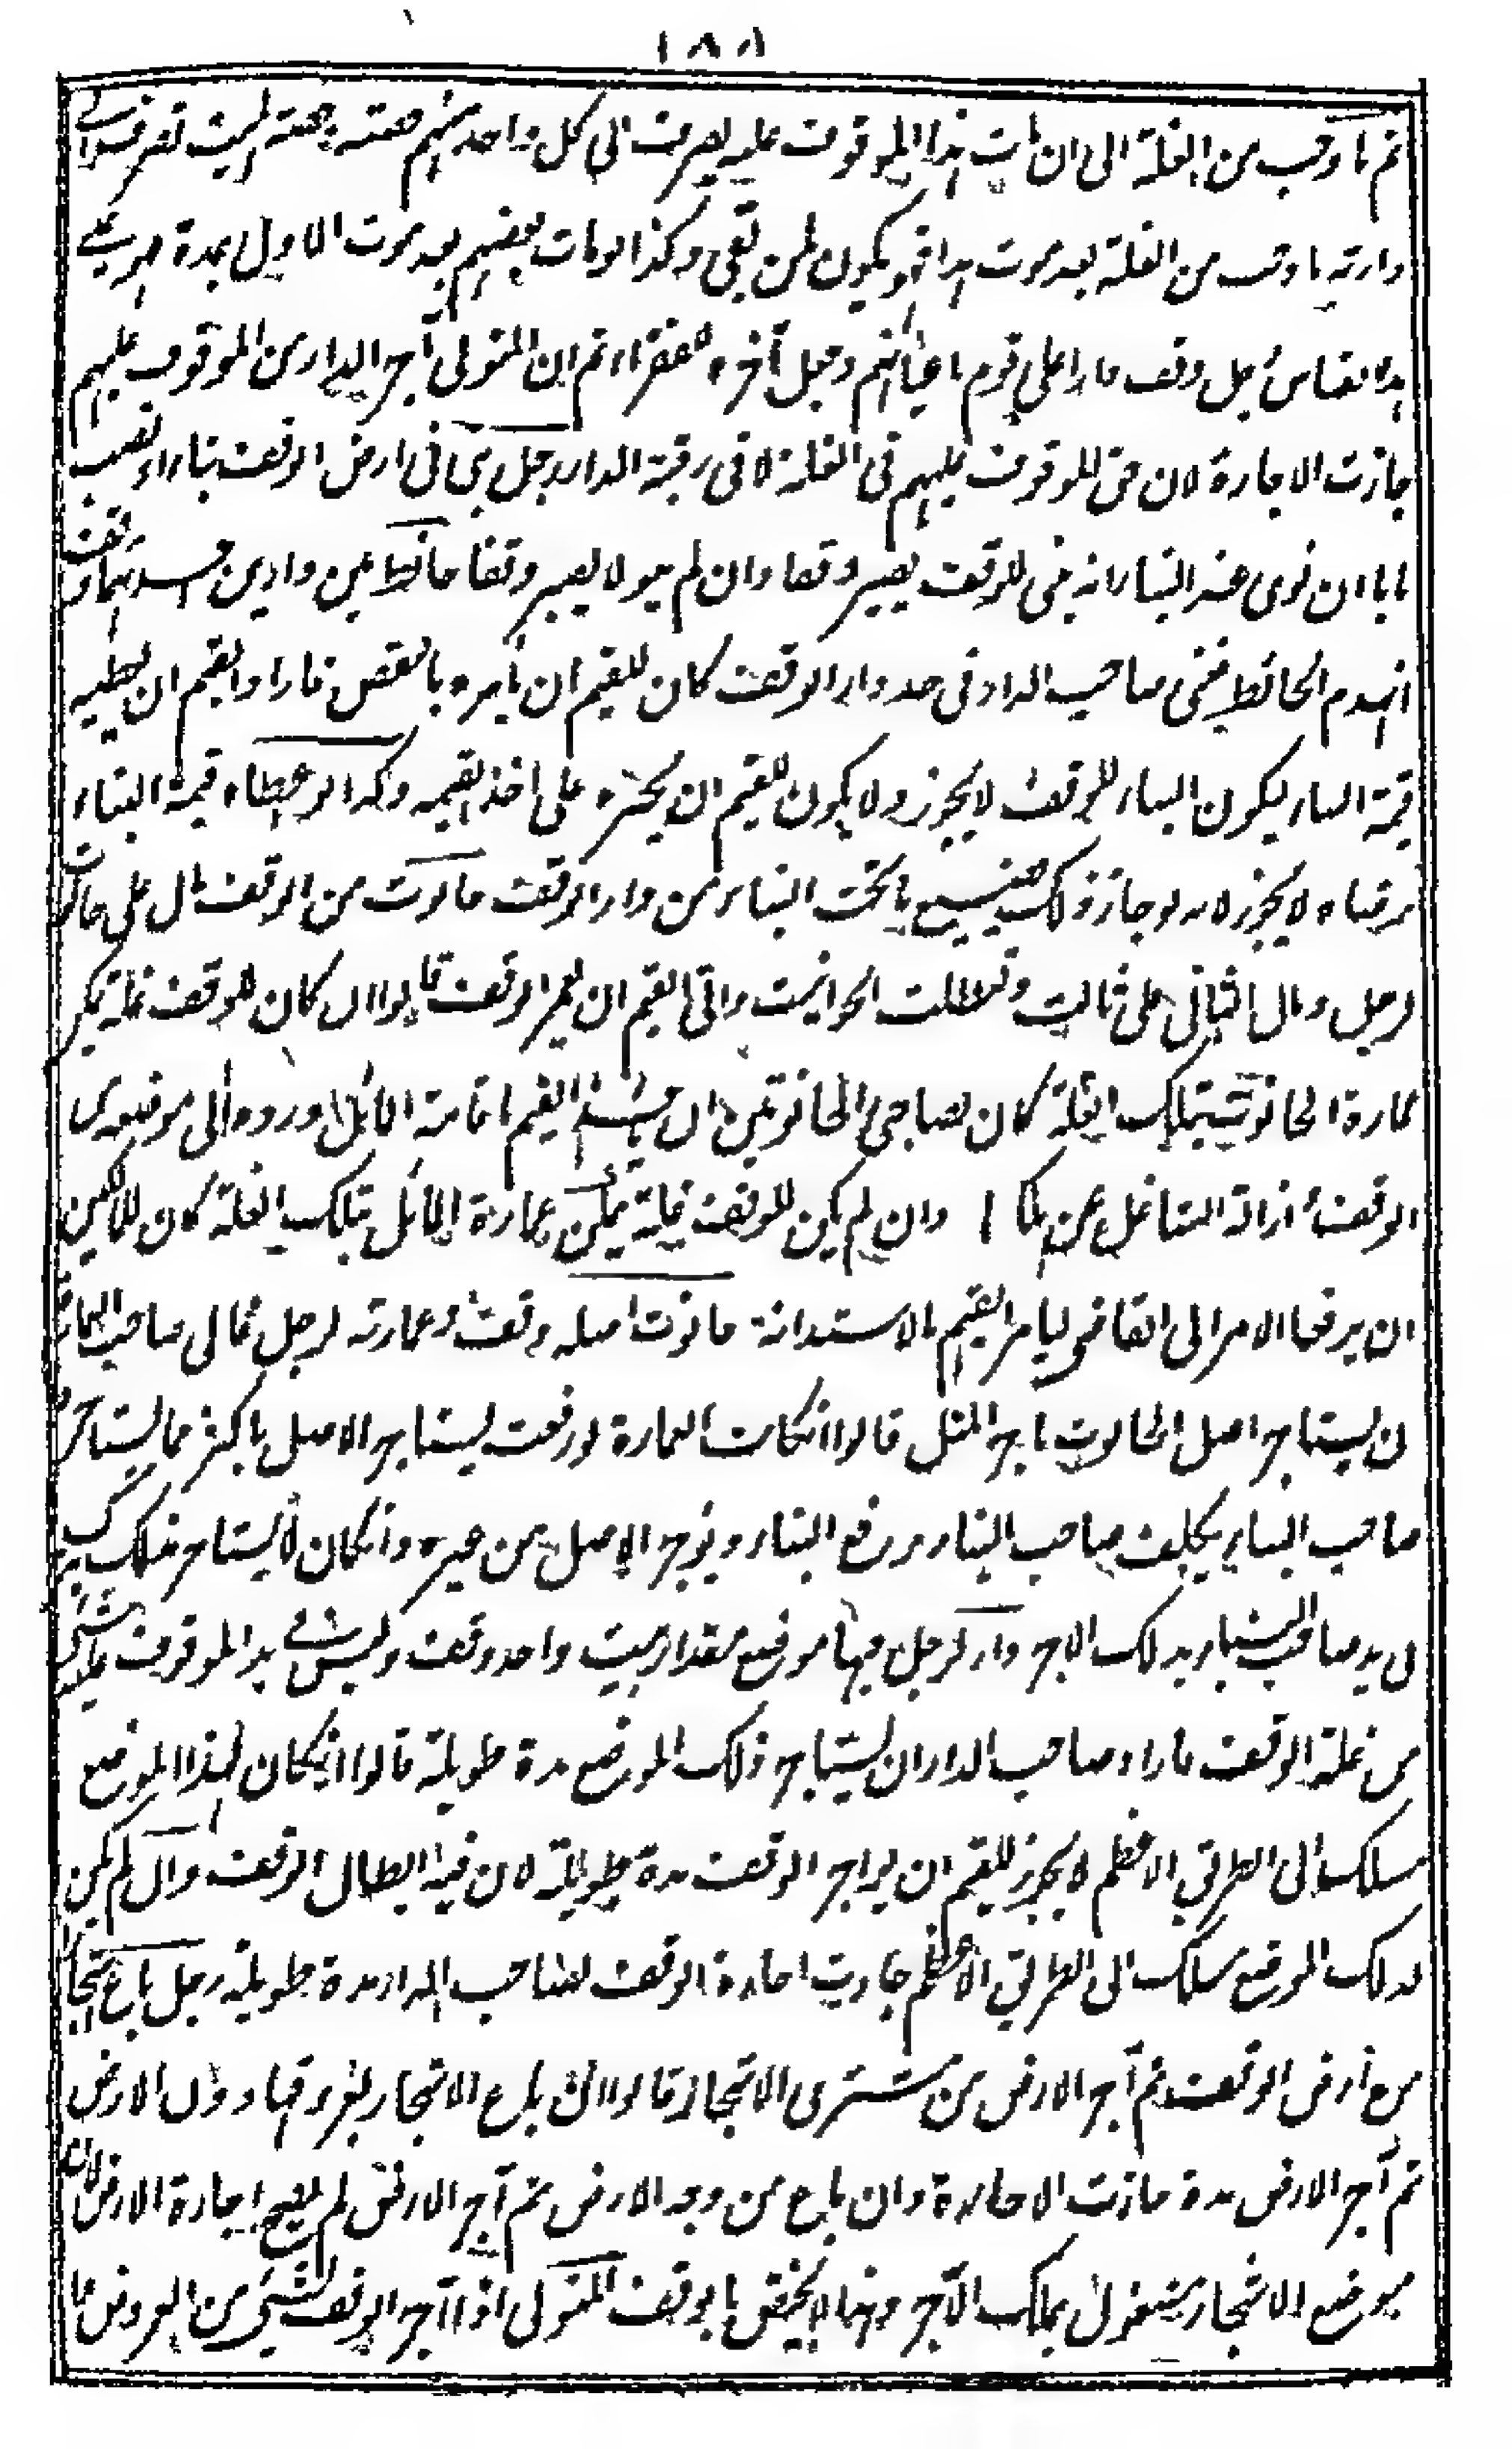 ١٨٨
ثم ما وجب من الغلة الى ان مات هذا الموقوف عليه يصرف الى كل واحد منهم حصته وحصته الميت تصرف الى
وارثه ما وجب من الغلة بعد موت هذا فهو يكون لمن بقى وكذا لو مات بعضهم بعد موت الاول بمدة فهو على
هذا القياس رجل وقف دارا على قوم باعيانهم وجعل آخره للفقراء ثم ان المتولى آجر الدار من الموقوف عليهم
جازت الاجارة لان حق الموقوف عليهم فى الغلة لا فى رقبة الدار رجل بنى فى ارض الوقف بناء او نصب
بابا ان نوى عند البناء انه بنى للوقف يصير وقفا وان لم ينو لا يصير وقفا حائط بين دارين احديهما وقف
انهدم الحائط فبنى صاحب الدار فى حد دار الوقف كان للقيم ان يأمره بالنقض فاراد القيم ان يعطيه
قيمة البناء ليكون البناء للوقف لا يجوز ولا يكون للقيم ان يجبره على اخذ القيمة وكذا لو اعطاه قيمة البناء
برضاه لا يجوز لانه لو جاز ذلك يضيع ما تحت البناء من دار الوقف حانوت من الوقف مال على حانوت
لرجل ومال الثانى على ثالث وتعطلت الحوانيت وابى القيم ان يعمر الوقف قالوا ان كان للوقف غلة يمكن
عمارة الحانوت بتلك الغلة كان لصاحبى الحانوتين ان القيم اقامة المائل ورده الى موضعه من
الوقف وازالة الشاغل عن ملكهما وان لم يكن للوقف غلة يمكن عمارة المائل بتلك الغلة كان للمالكين
ان يرفعا الامر الى القاضى ليأمر القيم بالاستدانة حانوت اصله وقف وعمارته لرجل فابى صاحب العمارة
ان يستأجر اصل الحانوت باجر المثل قالوا انكانت العمارة لو رفعت يستأجر الاصل باكثر مما يستأجر
صاحب البناء يكلف صاحب البناء برفع البناء ويوجر الاصل من غيره وانكان لا يستأجر بذلك يترك
فى يد صاحب البناء بذلك الاجر دار لرجل فيها موضع مقدار بيت واحد وقف وليس فى يد الموقوف عليه شئ
من غلة الوقف فاراد صاحب الدار ان يستأجر ذلك الموضع مدة طويلة قالوا انكان لهذا الموضع
مسلك الى الطريق الاعظم لا يجوز للقيم ان يواجر الوقف مدة طويلة لان فيه ابطال الوقف وان لم يكن
لذلك الموضع مسلك الى الطريق الاعظم جازت اجارة الوقف لصاحب الدار مدة طويلة رجل باع اشجارا
من ارض الوقف ثم آجر الارض من مشترى الاشجار قالوا ان باع الاشجار بعروقها دون الارض
ثم آجر الارض مدة جازت الاجارة وان باع من وجه الارض ثم آجر الارض لم يصح اجارة الارض لان
موضع الاشجار مشغول بملك الآجر وهذا لا يختص بالوقف المتولى اذا آجر الوقف بشئ من العروض